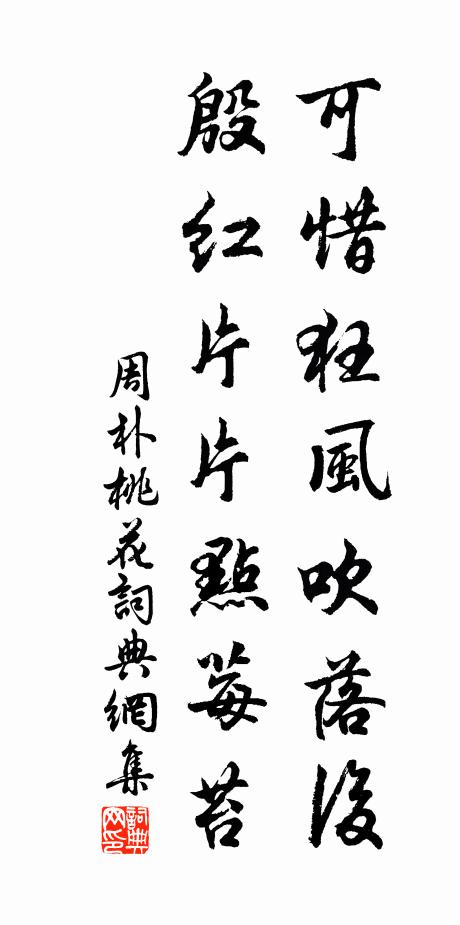 可惜狂風吹落後
殷红片片點莓苔
周朴桃花詞典網集
詞典网印